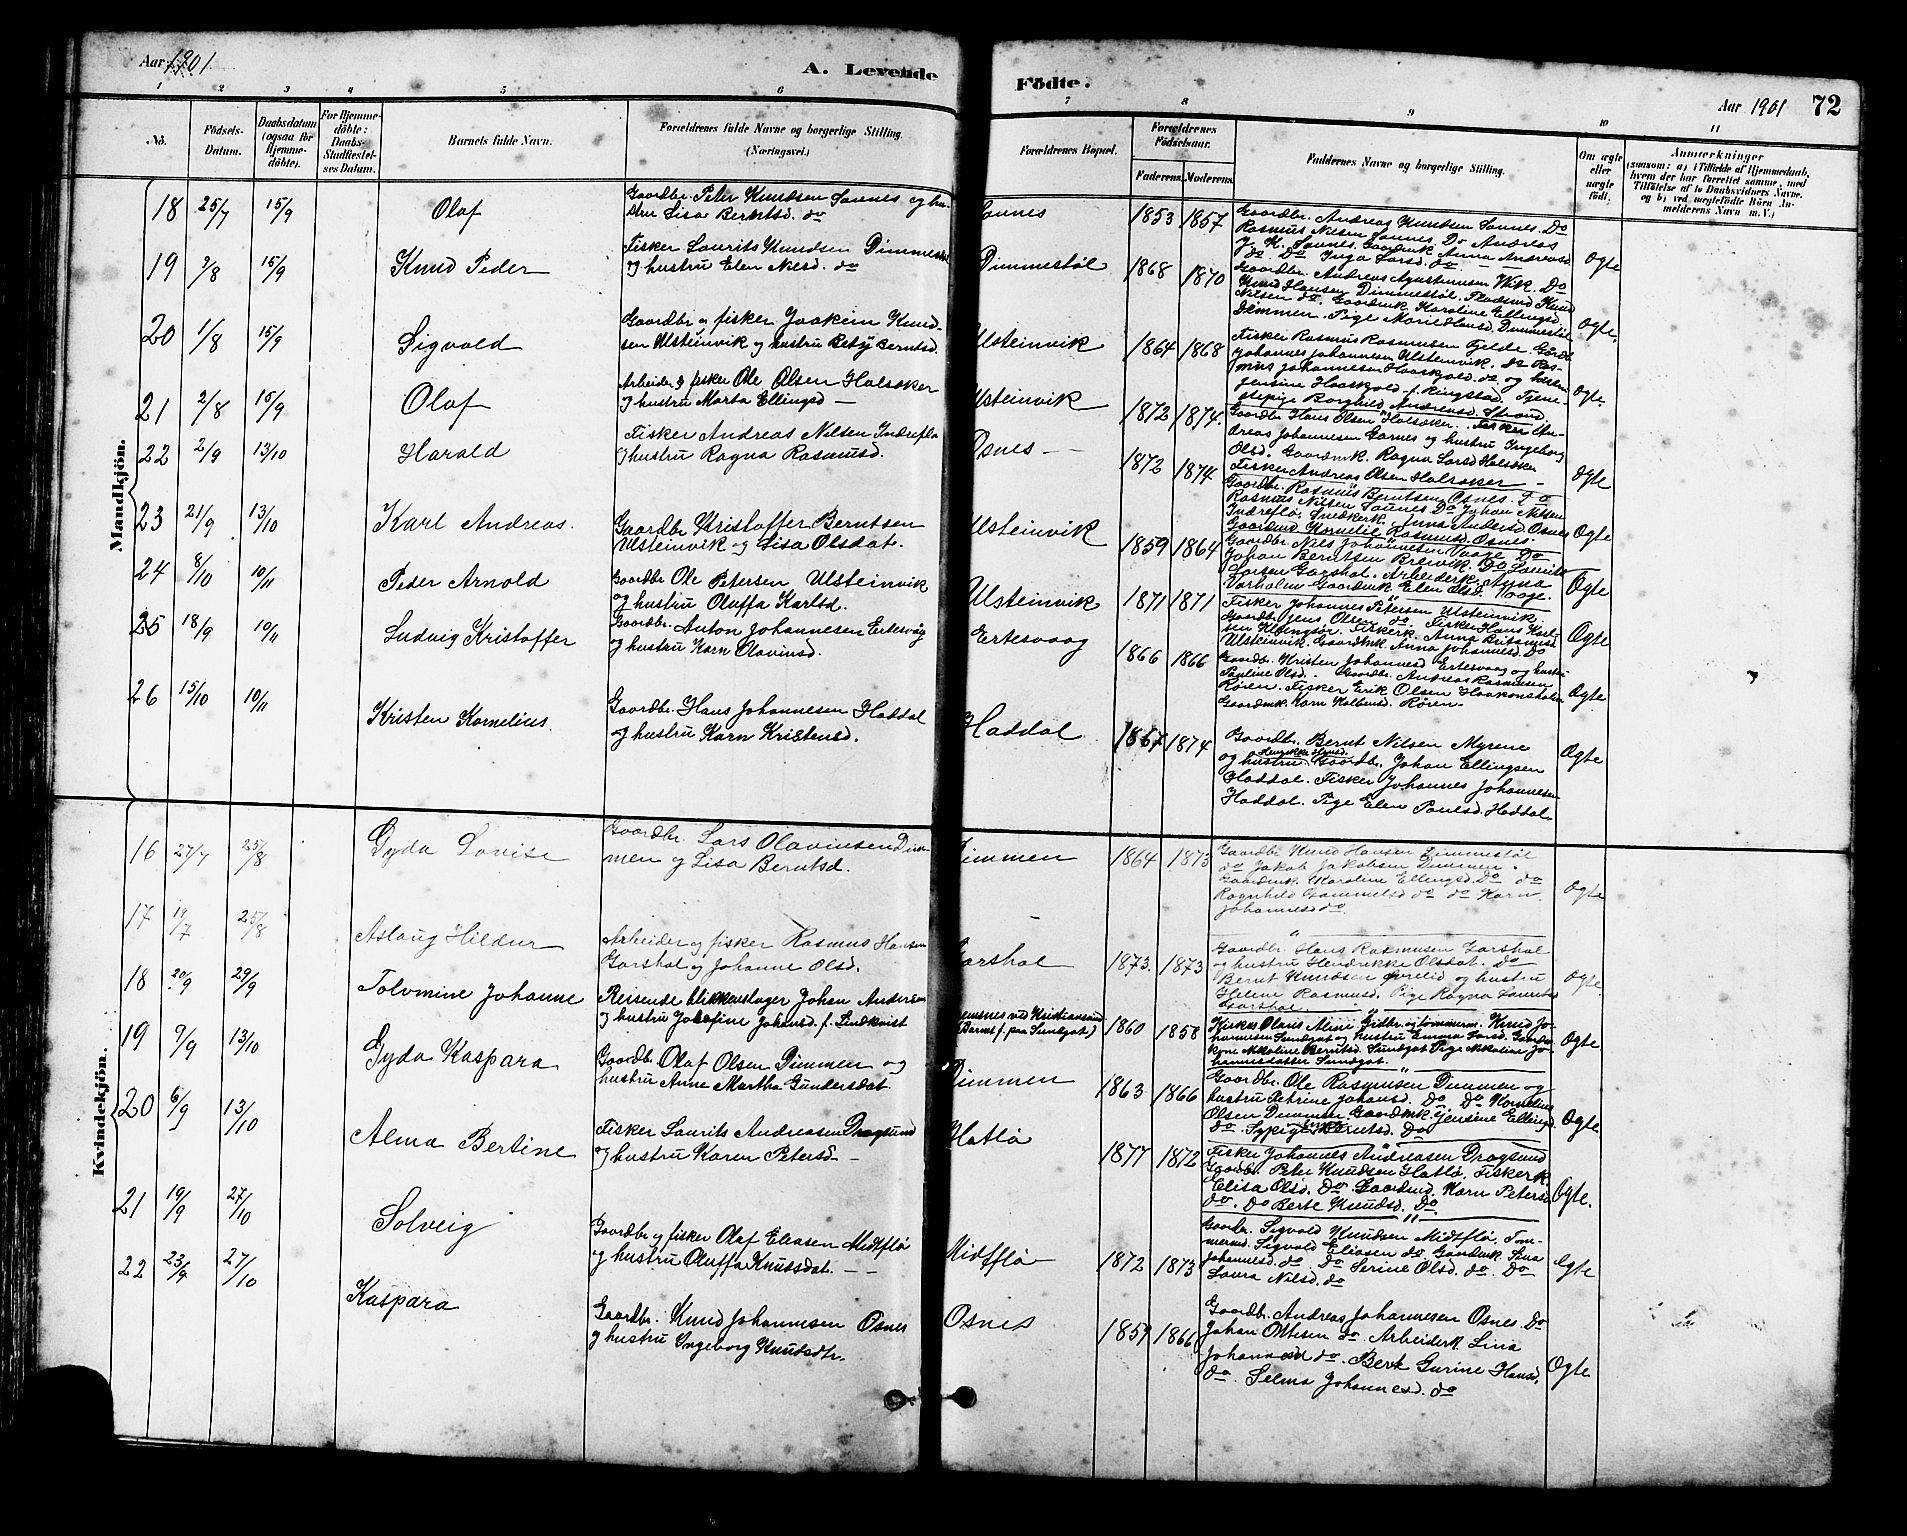 Aar 1901
A. Levende
Födte.
Aar 1901 72
1 2 3 4 5 6 7 8 9 10 11
No.
Födsels-
Datum.
Daabsdatum
(ogsaa for
Hjemme-
döbte).
For Hjemme-
döbte:
Daabs-
Stadfæstel-
ses Datum.
Barnets fulde Navn.
Forældrenes fulde Navne og borgerlige Stilling.
(Næringsvei.)
Forældrenes Bopæl.
Forældrenes
Födselsaar.
Faderens. Moderens.
Faddernes Navne og borgerlige Stilling.
Om ægte
eller
uægte
født.
Anmærkninger
(saasom: a) i Tilfælde af Hjemmedaab,
hvem der har forrettet samme, med
Tilföielse af to Daabsvidners Navne,
og b) ved uægtefödte Börn An-
melderens Navn m. V.)
Mandkjön.
18 25/7 15/9 Olaf
Gaardbr. Peter Knudsen Saunes og hu-
stru Lisa Berntsd. do
Saunes 1853 1857
Gaardbr. Andreas Knudsen Saunes. Do
Rasmus Nilsen Saunes. Do Andreas
J. K. Saunes. Gaardmk. Anna Andreasd
do. Do Inga Larsd. do
Ogte
19 9/8 15/9 Knud Peder
Fisker Laurits Knudsen Dimmestøl
og hustru Elen Nilsd. do
Dimmestøl 1868 1870
Gaardbr. Andreas Agustinusen Wik. Do
Knud Hansen Dimmestøl. Knud
Nilsen do. Gaardmk. Karoline Ellingsd
Dimmen. Pige Marie Hansd. Dimmestøl
Ogte.
20 1/8 15/9 Sigvald
Gaardbr og fisker Joakim Knud-
sen Ulsteinvik og hustru Berntsd.
Ulsteinvik 1864 1868
Fisker Rasmus Rasmusen Fjelde. Gardb
Johannes Johannesen Ulsteinvik. Do Ras-
mus Johannesen Haaskjold. do og hustru
Jensine Haaskjold f. Ringstad. Tjene-
stepige Borghild Andreasd. Strand.
Ogte.
21 2/8 15/9 Olaf
Arbeider og fisker Ole Olsen Holsøker
og hustru Marta Ellingsd —
Ulsteinvik 1872 1874.
Gaardbr Hans Olsen Holsøker. Fisker An-
dreas Johannesen Garnes og hustru Ingeborg
Olsd. Gaardmk. Ragna Larsd Holsøker
Fisker Andreas Olsen Holsøker —
Ogte
22 2/9 13/10 Harald
Fisker Andreas Nilsen Indreflø
og hustru Ragna Rasmusd.
Osnes — 1872 1874
Gaardbr. Rasmus Berntsen Osnes. Do
Rasmus Nilsen Saunes Do Johan Nilsen
Indreflø. Snedkerk. Anna Andersd Osnes
Gaardmd Kornelie Rasmusd. Osnes.
Ogte
23 21/9 13/10 Karl Andreas.
Gaardbr Kristoffer Berntsen
Ulsteinvik og Lisa Olsdat.
Ulsteinvik 1859 1864
Gaardbr Nils Johannesen Vaage. Do
Johan Berntsen Breivik. Do Laurits
Larsen Garshol. Arbeiderk. Anna
Varholm. Gaardmk. Elen Olsd. Vaage.
Ogte
24 8/10 10/11 Peder Arnold
Gaardbr Ole Petersen Ulsteinvik
og hustru Oluffa Karlsd.
Ulsteinvik 1871 1871
Fisker Johannes Petersen Ulsteinvik
Gaardbr Jens Olsen do. Fisker Hans Karl-
sen. Fiskerk. Anna
Ulsteinvik. Gaardmk Anna Johannesd. Do
Ogte
25 18/9 10/11 Ludvig Kristoffer
Gaardbr. Anton Johannesen Ertesvåg
og hustru Karn Olavinsd.
Ertesvaag 1866 1866
Gaardbr. Kristen Johannesd Ertesvaag og hustru
Pauline Olsd. Gaardbr. Andreas Rasmusen
Røren. Fisker Erik Olsen Haakonsholm
Gaardmk. Karn Kolbensd. Røren.
Ogte
26 15/10 10/11 Kristen Kornelius.
Gaardbr. Hans Johannesen Haddal
og hustru Karn Kristensd.
Haddal 1867 1874
Gaardbr. Bernt Nilsen Myrene
og hustru Henrikke Hansd. Gaardbr. Johan Ellingsen
Haddal. Fisker Johannes Johannesen
Haddal. Pige Elen Paulsd. Haddal
Ogte
Kvindekjön.
16 27/7 25/8 Gyda Lovise
Gaardbr. Lars Olavinsen Dim-
men og Lisa Berntsd.
Dimmen 1864 1873
Gaardbr Knud Hansen Dimmestøl
do Jakob Jakobsen Dimmen.
Gaardmk. Karoline Ellingsd. Do do
Ragnhild Gammelsd do do Karn
Johannesd do.
Ogte
17 19/7 25/8 Aslaug Hildur
Arbeider og fisker Rasmus Hansen
Garshol og Johanne Olsd.
Garshol 1873. 1873
Gaardbr. Hans Rasmusen Garshol
og hustru Hendrikke Olsdat. Do
Bernt Knudsen Øvrelid og hustru
Helene Rasmusd. Pige Ragna Lauritsd
Garshol.
Ogte.
18 20/9 29/9 Tolomine Johanne
Reisende blikkenslager Johan Andersen
og hustru Josefine Johansd. f. Lindkvist
ved Kristiansund
(Barnet f. paa Sundgot) 1860 1858
Kirkes. Olaus Alme Gidbr. og tommerm. Knud Jo-
hannesen Sundgot og hustru Emma Larsd. Gaard-
kone Nikoline Berntsd. Sundgot Pige Nikoline Jo-
hannesdatter Sundgot.
Ogte
19 9/9 13/10 Gyda Kaspara
Gaardbr. Olaf Olsen Dimmen og
hustru Anne Martha Gundersdat.
Dimmen 1863 1866
Gaardbr. Ole Rasmusen Dimmen og
hustru Petrine Johansd. Do. Do Kornelius
Olsen Dimmen. Gaardmk. Jensine Ellingsd
do. Sypige Berntsd. Do
Ogte.
20 6/9 13/10 Alma Bertine
Fisker Laurits Andreasen Dragsund
og hustru Karen Petersd —
Hatlø 1877 1872
Fisker Johannes Andreasen Dragsund
Gaardbr. Peter Knudsen Hatlø. Fiskerk
Elisa Olsd. Do. Gaardmd. Karn Petersd
do. Do Berte Knudsd. Do
Ogte.
21 19/9 27/10 Solveig
Gaardbr og fisker Olaf Eliasen Midtflø
og hustru Oluffa Knudsdat. — —
Midtflø 1872 1873
Gaardbr. Sigvald Knudsen Midtflø. Tøm-
mermd. Sigvald Eliasen do Gaardmk. Lina
Johannesd. do. Do Serine Olsd. do. Do
Laura Nilsd. do
Ogte
22 23/9 27/10 Kaspara
Gaardbr. Knud Johannesen Osnes
og hustru Ingeborg Knudsdtr.
Osnes 1859 1866
Gaardbr. Andreas Johannesen Osnes. Do
Johan Ottesen do. Arbeiderk. Lina
Johannesd do. Berte Gurine Hansd.
do. Selma Johannesd. do
Ogte